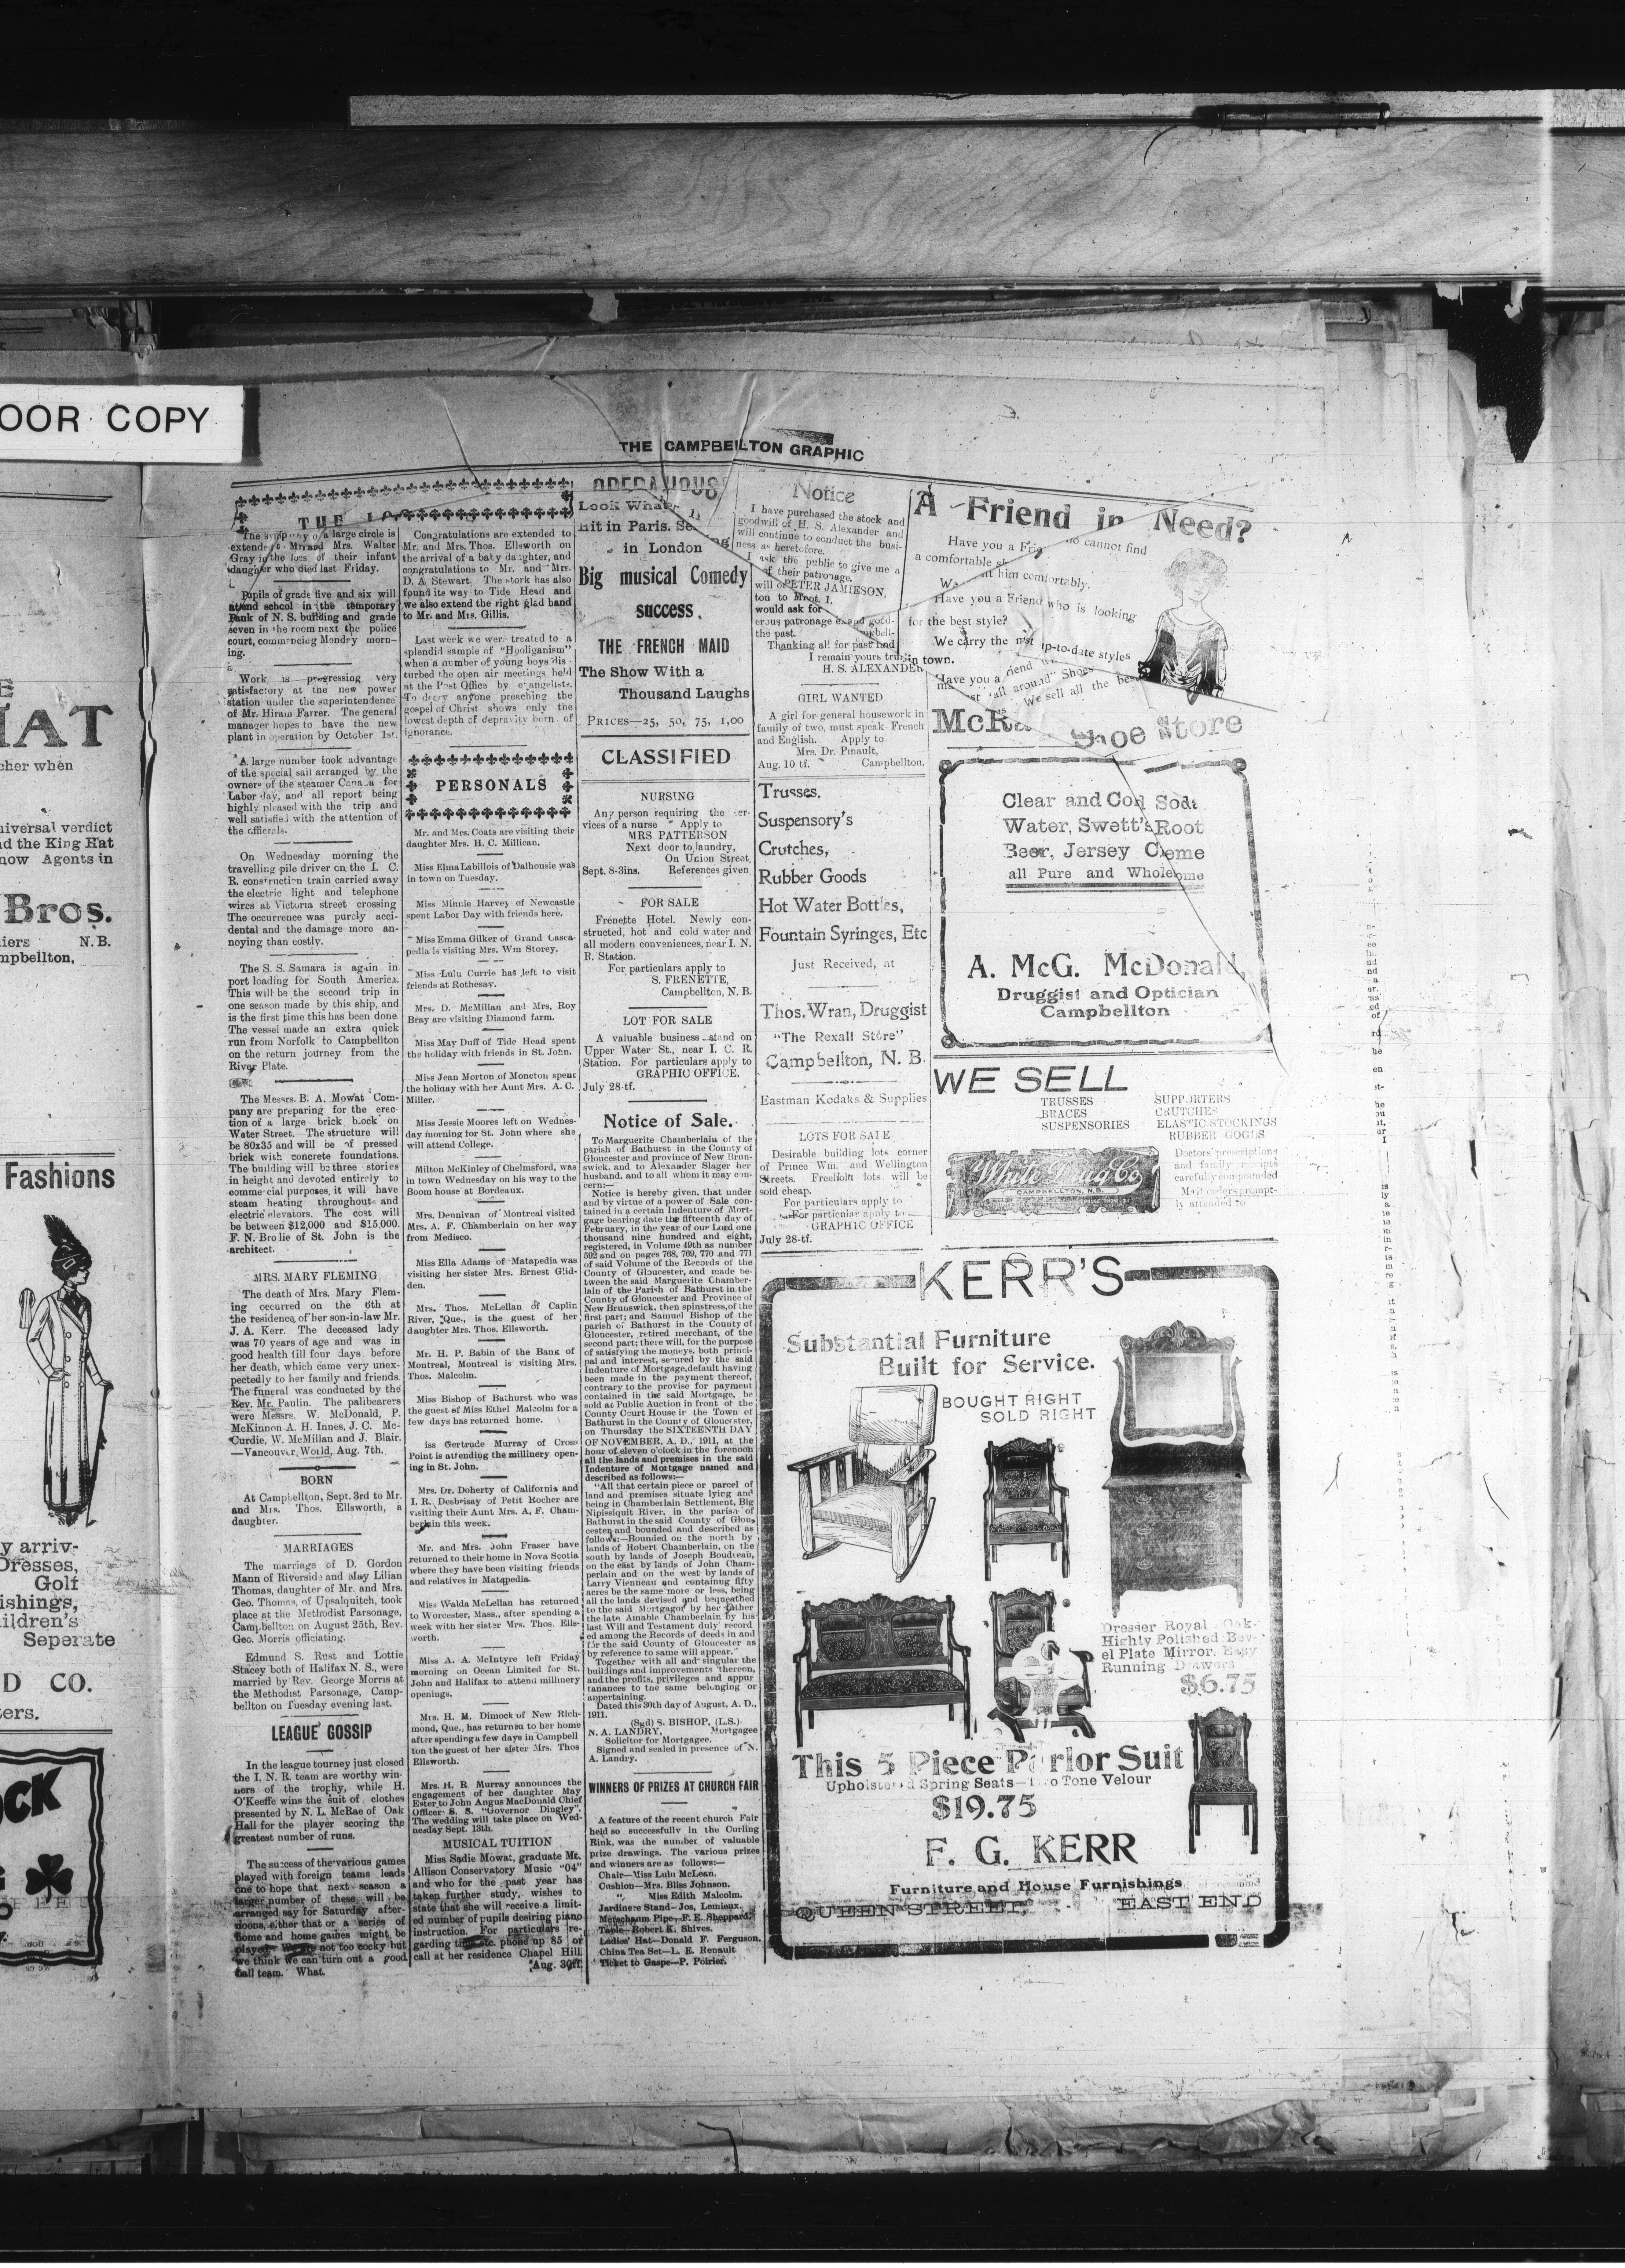 OOR COPY
THE CAMPBELLTON GRAPHIC
HAT
cher when
niversal verdict
nd the King Hat
now Agents in
Bros.
N.B.
mpbellton,
Fashions
y arriv-
Dresses,
Golf
ishings,
ildren's
Seperate
D CO.
ers.
OCK
THE
The sympathy of a large circle is
extended to Mr. and Mrs. Walter
Gray in the loss of their infant
daughter who died last Friday.
Pupils of grade five and six will
attend school in the temporary
Bank of N. S. building and grade
seven in the room next the police
court, commencing Mondry morn-
ing.
Work is progressing very
satisfactory at the new power
station under the superintendence
of Mr. Hiram Farrer. The general
manager hopes to have the new
plant in operation by October 1st.
A large number took advantage
of the special sail arranged by the
owners of the steamer Canada for
Labor day, and all report being
highly pleased with the trip and
well satisfied with the attention of
the officials.
On Wednesday morning the
travelling pile driver on the I. C.
R. construction train carried away
the electric light and telephone
wires at Victoria street crossing
The occurrence was purely acci-
dental and the damage more an-
noying than costly.
The S. S. Samara is again in
port loading for South America.
This will be the second trip in
one season made by this ship, and
is the first time this has been done.
The vessel made an extra quick
run from Norfolk to Campbellton
on the return journey from the
River Plate.
The Messrs. B. A. Mowat Com-
pany are preparing for the erec-
tion of a large brick block on
Water Street. The structure will
be 80x35 and will be of pressed
brick with concrete foundations.
The building will be three stories
in height and devoted entirely to
commercial purposes, it will have
steam heating throughout and
electric elevators. The cost will
be between $12,000 and $15,000.
F. N. Brolie of St. John is the
architect.
MRS. MARY FLEMING
The death of Mrs. Mary Flem-
ing occurred on the 6th at
the residence of her son-in-law Mr.
J. A. Kerr. The deceased lady
was 70 years of age and was in
good health till four days before
her death, which came very unex-
pectedly to her family and friends.
The funeral was conducted by the
Rev. Mr. Paulin. The pallbearers
were Messrs. W. McDonald, P.
McKinnon A. H. Innes, J. C. Mc-
Curdie, W. McMillan and J. Blair.
—Vancouver, World, Aug. 7th.
BORN
At Campbellton, Sept. 3rd to Mr.
and Mrs. Thos. Ellsworth, a
daughter.
MARRIAGES
The marriage of D. Gordon
Mann of Riverside and May Lilian
Thomas, daughter of Mr. and Mrs.
Geo. Thomas, of Upsalquitch, took
place at the Methodist Parsonage,
Campbellton on August 25th, Rev.
Geo. Morris officiating.
Edmund S. Rust and Lottie
Stacey both of Halifax N. S., were
married by Rev. George Morris at
the Methodist Parsonage, Camp-
bellton on Tuesday evening last.
LEAGUE GOSSIP
In the league tourney just closed
the I. N. R. team are worthy win-
ners of the trophy, while H.
O'Keeffe wins the suit of clothes
presented by N. L. McRae of Oak
Hall for the player scoring the
greatest number of runs.
The success of the various games
played with foreign teams leads
one to hope that next season a
larger number of these will be
arranged say for Saturday after-
noons, either that or a series of
home and home games might be
played. We are not too cocky but
we think we can turn out a good
ball team. What.
Congratulations are extended to
Mr. and Mrs. Thos. Ellsworth on
the arrival of a baby daughter, and
congratulations to Mr. and Mrs.
D. A. Stewart. The stork has also
found its way to Tide Head and
we also extend the right glad hand
to Mr. and Mrs. Gillis.
Last week we were treated to a
splendid sample of "Hooliganism"
when a number of young boys dis-
turbed the open air meetings held
at the Post Office by evangelists.
To decry anyone preaching the
gospel of Christ shows only the
lowest depth of depravity born of
ignorance.
PERSONALS
Mr. and Mrs. Coats are visiting their
daughter Mrs. H. C. Millican.
Miss Elma Labillois of Dalhousie was
in town on Tuesday.
Miss Minnie Harvey of Newcastle
spent Labor Day with friends here.
Miss Emma Gilker of Grand Casca-
pedia is visiting Mrs. Wm Storey.
Miss Lulu Currie has left to visit
friends at Rothesay.
Mrs. D. McMillan and Mrs. Roy
Bray are visiting Diamond farm.
Miss May Duff of Tide Head spent
the holiday with friends in St. John.
Miss Jean Morton of Moncton spent
the holiday with her Aunt Mrs. A. C.
Miller.
Miss Jessie Moores left on Wednes-
day morning for St. John where she
will attend College.
Milton McKinley of Chelmsford, was
in town Wednesday on his way to the
Boom house at Bordeaux.
Mrs. Dennivan of Montreal visited
Mrs. A. F. Chamberlain on her way
from Medisco.
Miss Ella Adams of Matapedia was
visiting her sister Mrs. Ernest Glid-
den.
Mrs. Thos. McLellan of Caplin
River, Que., is the guest of her
daughter Mrs. Thos. Ellsworth.
Mr. H. P. Babin of the Bank of
Montreal, Montreal is visiting Mrs.
Thos. Malcolm.
Miss Bishop of Bathurst who was
the guest of Miss Ethel Malcolm for a
few days has returned home.
iss Gertrude Murray of Cross
Point is attending the millinery open-
ing in St. John.
Mrs. Dr. Doherty of California and
I. R. Desbrisay of Petit Rocher are
visiting their Aunt Mrs. A. F. Cham-
berlain this week.
Mr. and Mrs. John Fraser have
returned to their home in Nova Scotia
where they have been visiting friends
and relatives in Matapedia.
Miss Walda McLellan has returned
to Worcester, Mass., after spending a
week with her sister Mrs. Thos. Ells-
worth.
Miss A. A. McIntyre left Friday
morning on Ocean Limited for St.
John and Halifax to attend millinery
openings.
Mrs. H. M. Dimock of New Rich-
mond, Que., has returned to her home
after spending a few days in Campbell
ton the guest of her sister Mrs. Thos
Ellsworth.
Mrs. H. R. Murray announces the
engagement of her daughter May
Ester to John Angus MacDonald Chief
Officer S. S. "Governor Dingley".
The wedding will take place on Wed-
nesday Sept. 13th.
MUSICAL TUITION
Miss Sadie Mowat, graduate Mt.
Allison Conservatory Music "04"
and who for the past year has
taken further study, wishes to
state that she will receive a limit-
ed number of pupils desiring piano
instruction. For particulars re-
garding time etc. phone up 85 or
call at her residence Chapel Hill.
Aug. 30tf
OPERA HOUSE
Look What
Hit in Paris.
in London
Big musical Comedy
success.
THE FRENCH MAID
The Show With a
Thousand Laughs
PRICES—25, 50, 75, 1,00
CLASSIFIED
NURSING
Any person requiring the ser-
vices of a nurse Apply to
MRS PATTERSON
Next door to laundry,
On Union Street,
Sept. 8-3ins. References given
FOR SALE
Frenette Hotel. Newly con-
structed, hot and cold water and
all modern conveniences, near I. N.
R. Station.
For particulars apply to
S. FRENETTE,
Campbellton, N. B.
LOT FOR SALE
A valuable business stand on
Upper Water St., near I. C. R.
Station. For particulars apply to
GRAPHIC OFFICE.
July 28-tf.
Notice of Sale.
To Marguerite Chamberlain of the
parish of Bathurst in the County of
Gloucester and province of New Brun-
swick, and to Alexander Slager her
husband, and to all whom it may con-
cern:—
Notice is hereby given, that under
and by virtue of a power of Sale con-
tained in a certain Indenture of Mort-
gage bearing date the fifteenth day of
February, in the year of our Lord one
thousand nine hundred and eight,
registered, in Volume 49th as number
592 and on pages 768, 769, 770 and 771
of said Volume of the Records of the
County of Gloucester, and made be-
tween the said Marguerite Chamber-
lain of the Parish of Bathurst in the
County of Gloucester and Province of
New Brunswick, then spinstress, of the
first part; and Samuel Bishop of the
parish of Bathurst in the County of
Gloucester, retired merchant, of the
second part; there will, for the purpose
of satisfying the moneys, both princi-
pal and interest, secured by the said
Indenture of Mortgage, default having
been made in the payment thereof,
contrary to the provise for payment
contained in the said Mortgage, be
sold at Public Auction in front of the
County Court House in the Town of
Bathurst in the County of Gloucester,
on Thursday the SIXTEENTH DAY
OF NOVEMBER, A. D., 1911, at the
hour of eleven o'clock in the forenoon
all the lands and premises in the said
Indenture of Mortgage named and
described as follows:—
"All that certain piece or parcel of
land and premises situate lying and
being in Chamberlain Settlement, Big
Nipissiquit River, in the parish of
Bathurst in the said County of Glou-
cester and bounded and described as
follows:—Bounded on the north by
lands of Robert Chamberlain, on the
south by lands of Joseph Boudreau,
on the east by lands of John Cham-
perlain and on the west by lands of
Larry Vienneau and containng fifty
acres be the same more or less, being
all the lands devised and bequeathed
to the said Mortgagor by her father
the late Amable Chamberlain by his
last Will and Testament duly record
ed among the Records of deeds in and
for the said County of Gloucester as
by reference to same will appear."
Together with all and singular the
buildings and improvements thereon,
and the profits, privileges and appur
tanances to the same belonging or
appertaining.
Dated this 30th day of August, A. D.,
1911.
(Sgd) S. BISHOP, (L.S.)
N. A. LANDRY, Mortgagee
Solicitor for Mortgagee.
Signed and sealed in presence of N.
A. Landry.
WINNERS OF PRIZES AT CHURCH FAIR
A feature of the recent church Fair
held so successfully in the Curling
Rink, was the number of valuable
prize drawings. The various prizes
and winners are as follows:—
Chair—Miss Lulu McLean.
Cushion—Mrs. Bliss Johnson.
" Miss Edith Malcolm.
Jardinere Stand—Jos, Lemieux.
Merschaum Pipe—F. E. Sheppard.
Table—Robert K. Shives.
Ladies' Hat—Donald F. Ferguson.
China Tea Set—L. E. Renault
Ticket to Gaspe—P. Poirier.
Notice
I have purchased the stock and
goodwill of H. S. Alexander and
will continue to conduct the busi-
ness as heretofore.
I ask the public to give me a
of their patronage,
PETER JAMIESON,
would ask for
erous patronage
the past.
Thanking all for past
I remain yours truly
H. S. ALEXANDER
GIRL WANTED
A girl for general housework in
family of two, must speak French
and English. Apply to
Mrs. Dr. Pinault,
Aug. 10 tf. Campbellton.
Trusses.
Suspensory's
Crutches,
Rubber Goods
Hot Water Bottles,
Fountain Syringes, Etc
Just Received, at
Thos. Wran, Druggist
"The Rexall Store"
Campbellton, N. B.
Eastman Kodaks & Supplies
LOTS FOR SALE
Desirable building lots corner
of Prince Wm. and Wellington
Streets. Freehold lots will be
sold cheap.
For particulars apply to
For particular apply to
GRAPHIC OFFICE
July 28-tf.
A Friend in Need?
Have you a cannot find
a comfortable
him comfortably.
Have you a Friend who is looking
for the best style?
We carry the up-to-date styles
in town.
Have you a friend
"all around" Shoe
We sell all the best
Shoe Store
Clear and Cold Soda
Water, Swett's Root
Beer, Jersey Creme
all Pure and Wholesome
A. McG. McDonald,
Druggist and Optician
Campbellton
WE SELL
TRUSSES SUPPORTERS
BRACES CRUTCHES
SUSPENSORIES ELASTIC STOCKINGS
RUBBER GOODS
White Drug Co
CAMPBELLTON, N.B.
Doctors' prescriptions
and family receipts
carefully compounded
Mail orders prompt-
ly attended to
KERR'S
Substantial Furniture
Built for Service.
BOUGHT RIGHT
SOLD RIGHT
Dresser Royal Oak-
Highly Polished Bev-
el Plate Mirror. Easy
Running Drawers
$6.75
This 5 Piece Parlor Suit
Upholstered Spring Seats—Two Tone Velour
$19.75
F. G. KERR
Furniture and House Furnishings
QUEEN STREET, EAST END